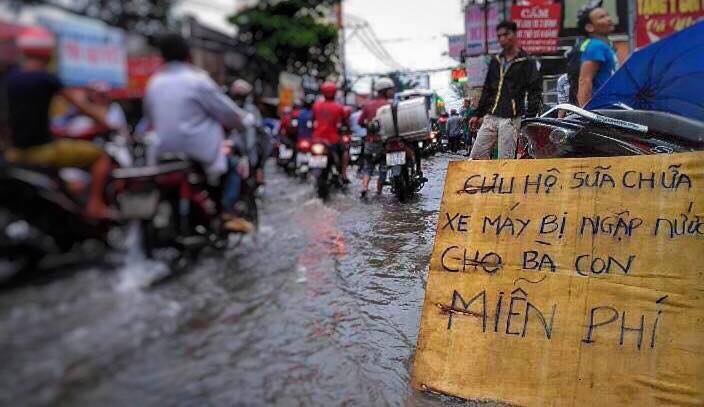 CẤM
CỨU HỘ SỮA CHỮA
XE MÁY BỊ NGẬP NƯỚC
CHO BÀ CON
MIỄN PHÍ